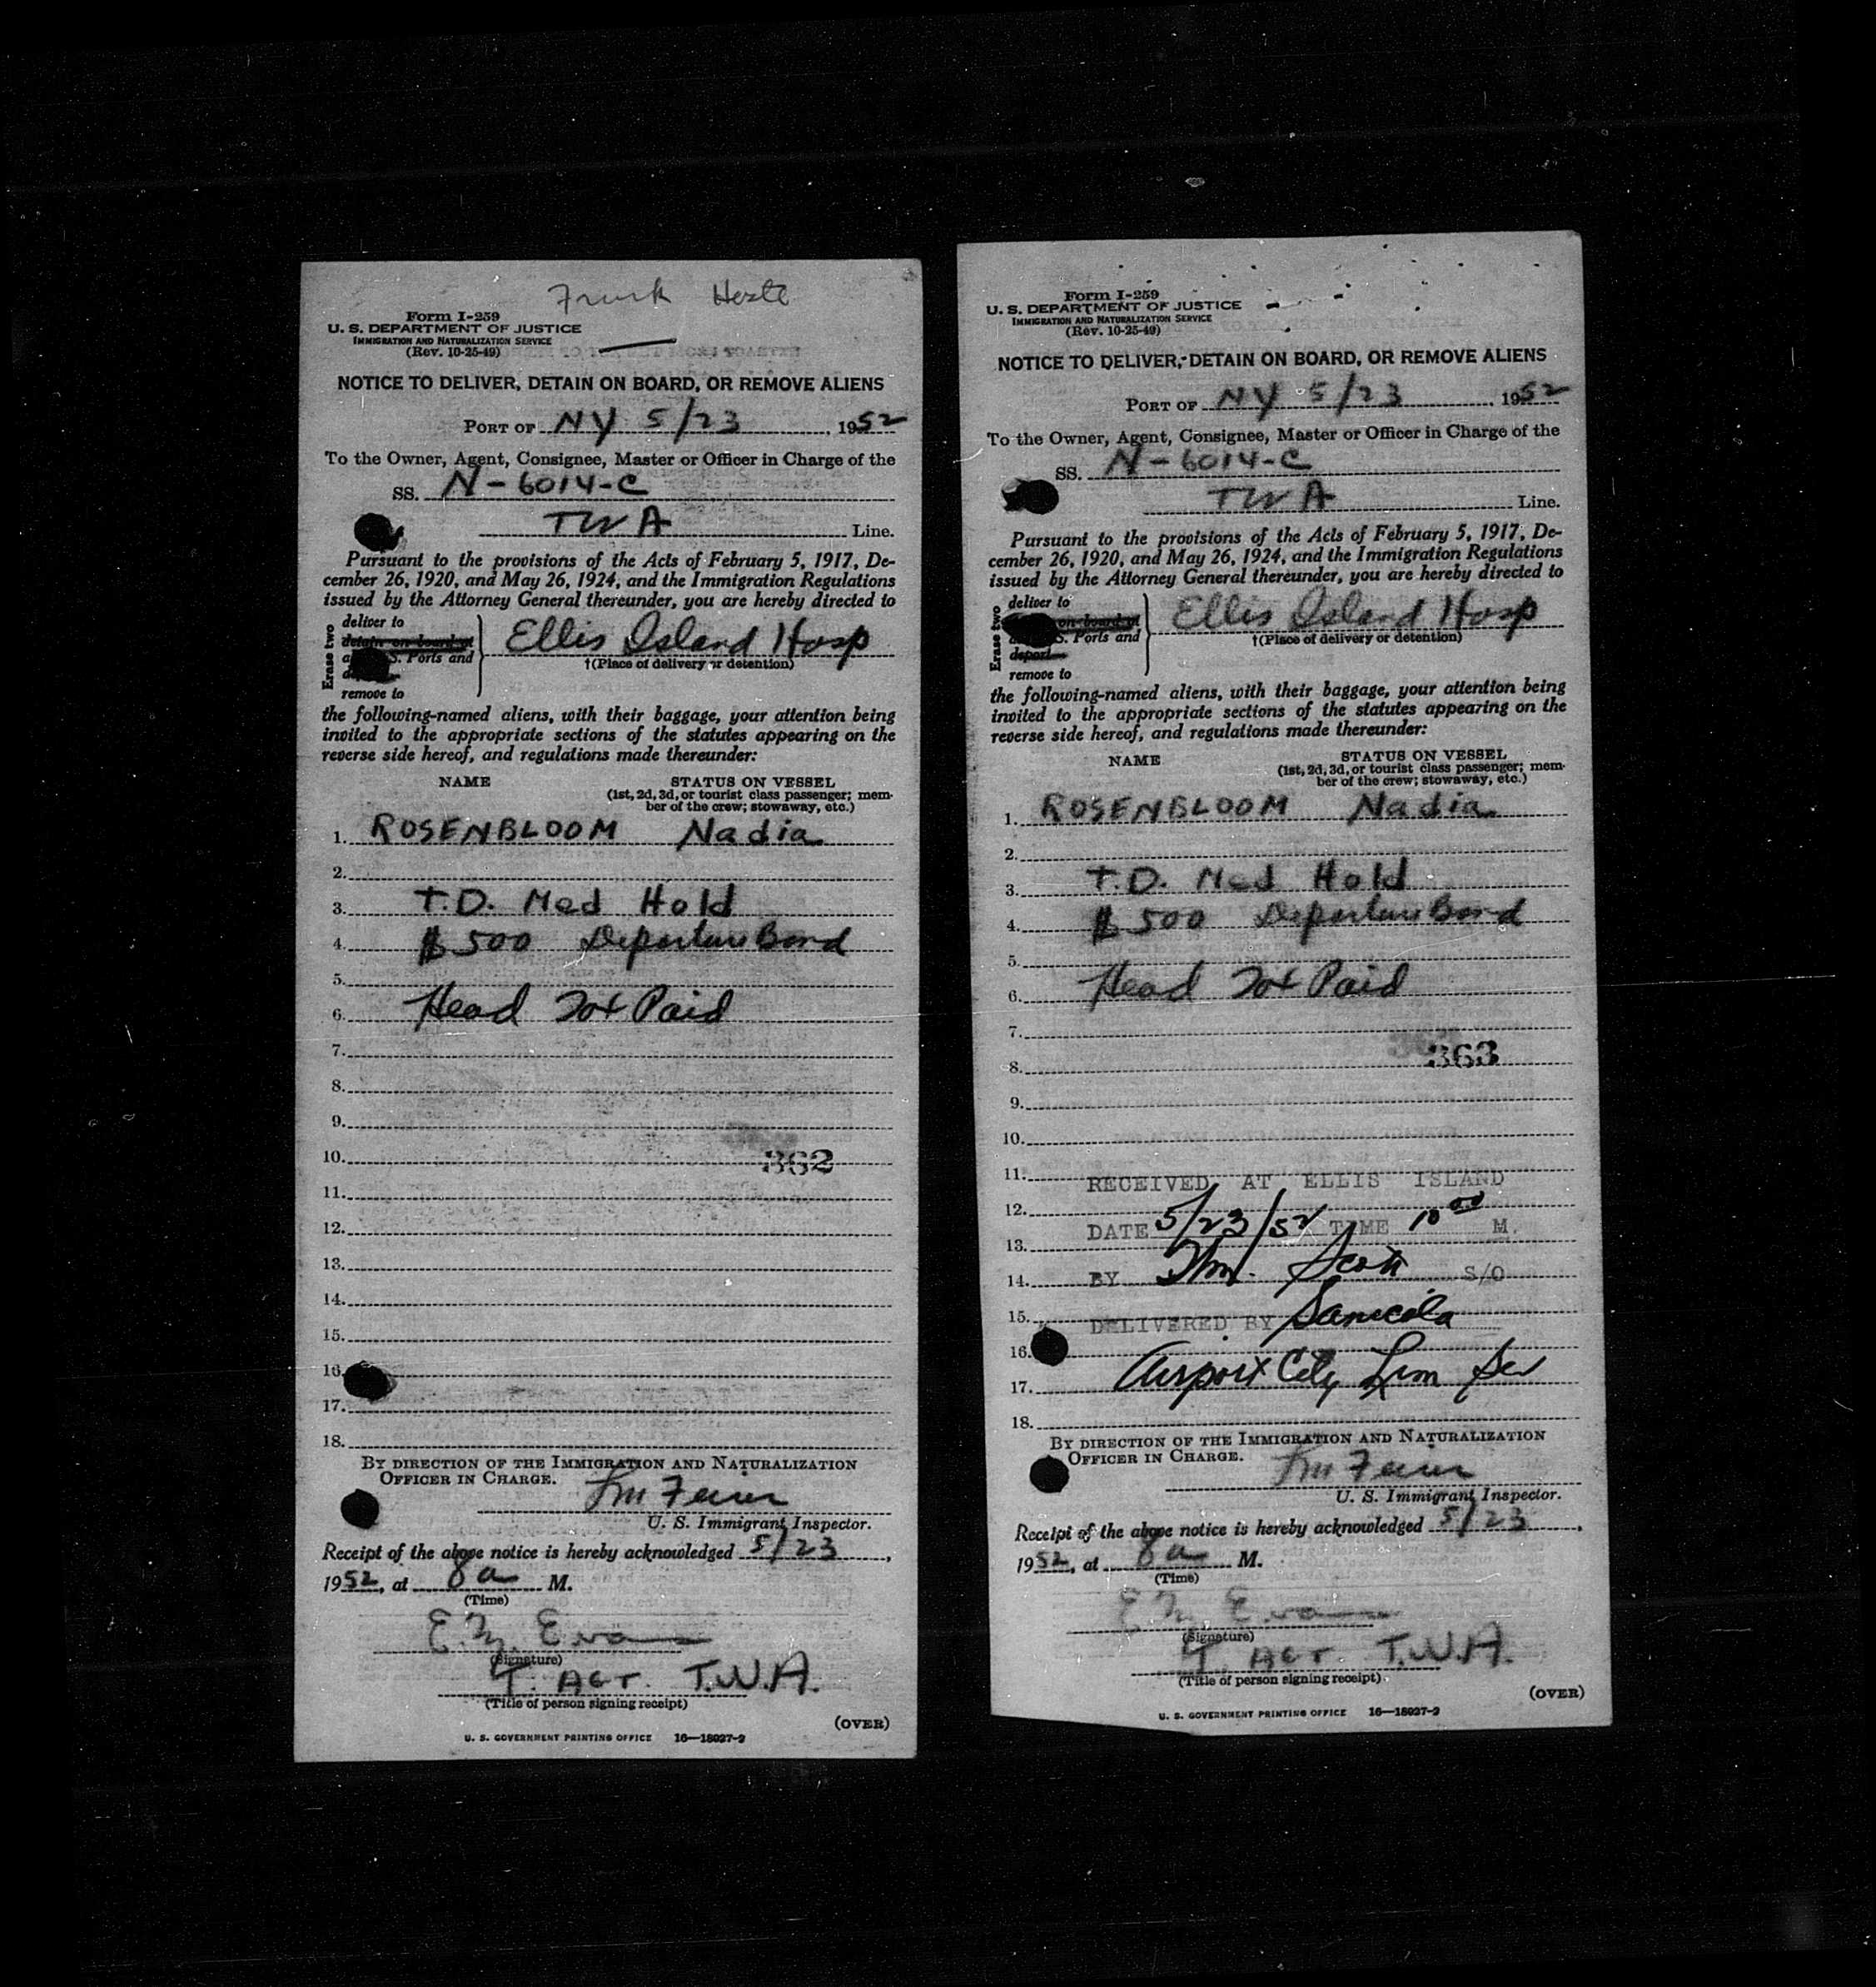 Form I-259
U. S. DEPARTMENT OF JUSTICE
IMMIGRATION AND NATURALIZATION SERVICE
(Rev. 10-25-49)
NOTICE TO DELIVER, DETAIN ON BOARD, OR REMOVE ALIENS
PORT OF NY 5/23, 1952
To the Owner, Agent, Consignee, Master or Officer in Charge of the
SS. N-6014-C
TWA Line.
Pursuant to the provisions of the Acts of February 5, 1917, De-
cember 26, 1920, and May 26, 1924, and the Immigration Regulations
issued by the Attorney General thereunder, you are hereby directed to
Erase two
deliver to
detain on board at
S. Ports and
remove to
Ellis Island Hosp
†(Place of delivery or detention)
the following-named aliens, with their baggage, your attention being
invited to the appropriate sections of the statutes appearing on the
reverse side hereof, and regulations made thereunder:
NAME STATUS ON VESSEL
(1st, 2d, 3d, or tourist class passenger; mem-
ber of the crew; stowaway, etc.)
1. ROSENBLOOM Nadia
2.
3. T.D. Med Hold
4. $500 Departure Bond
5.
6. Head Tax Paid
7.
8.
9.
10. 362
11.
12.
13.
14.
15.
16.
17.
18.
BY DIRECTION OF THE IMMIGRATION AND NATURALIZATION
OFFICER IN CHARGE.
U. S. Immigrant Inspector.
Receipt of the above notice is hereby acknowledged 5/23,
1952, at 8a M.
(Time)
E. Evans
(Signature)
T. AGT. T.W.A.
(Title of person signing receipt)
(OVER)
U. S. GOVERNMENT PRINTING OFFICE 16—18027-2
Form I-259
U. S. DEPARTMENT OF JUSTICE
IMMIGRATION AND NATURALIZATION SERVICE
(Rev. 10-25-49)
NOTICE TO DELIVER, DETAIN ON BOARD, OR REMOVE ALIENS
PORT OF NY 5/23, 1952
To the Owner, Agent, Consignee, Master or Officer in Charge of the
SS. N-6014-C
TWA Line.
Pursuant to the provisions of the Acts of February 5, 1917, De-
cember 26, 1920, and May 26, 1924, and the Immigration Regulations
issued by the Attorney General thereunder, you are hereby directed to
Erase two
deliver to
on board at
S. Ports and
deport
remove to
Ellis Island Hosp
†(Place of delivery or detention)
the following-named aliens, with their baggage, your attention being
invited to the appropriate sections of the statutes appearing on the
reverse side hereof, and regulations made thereunder:
NAME STATUS ON VESSEL
(1st, 2d, 3d, or tourist class passenger; mem-
ber of the crew; stowaway, etc.)
1. ROSENBLOOM Nadia
2.
3. T.D. Med Hold
4. $500 Departure Bond
5.
6. Head Tax Paid
7.
8. 363
9.
10.
11. RECEIVED AT ELLIS ISLAND
12.
DATE 5/23/52 TIME 10 00 M.
13.
14. BY Thm. Scott S/O
15. DELIVERED BY Sanicola
16.
17. Airport City Lim Ser
18.
BY DIRECTION OF THE IMMIGRATION AND NATURALIZATION
OFFICER IN CHARGE.
U. S. Immigrant Inspector.
Receipt of the above notice is hereby acknowledged 5/23,
1952, at 8a M.
(Time)
E. Evans
(Signature)
T. AGT. T.W.A.
(Title of person signing receipt)
(OVER)
U. S. GOVERNMENT PRINTING OFFICE 16—18027-2